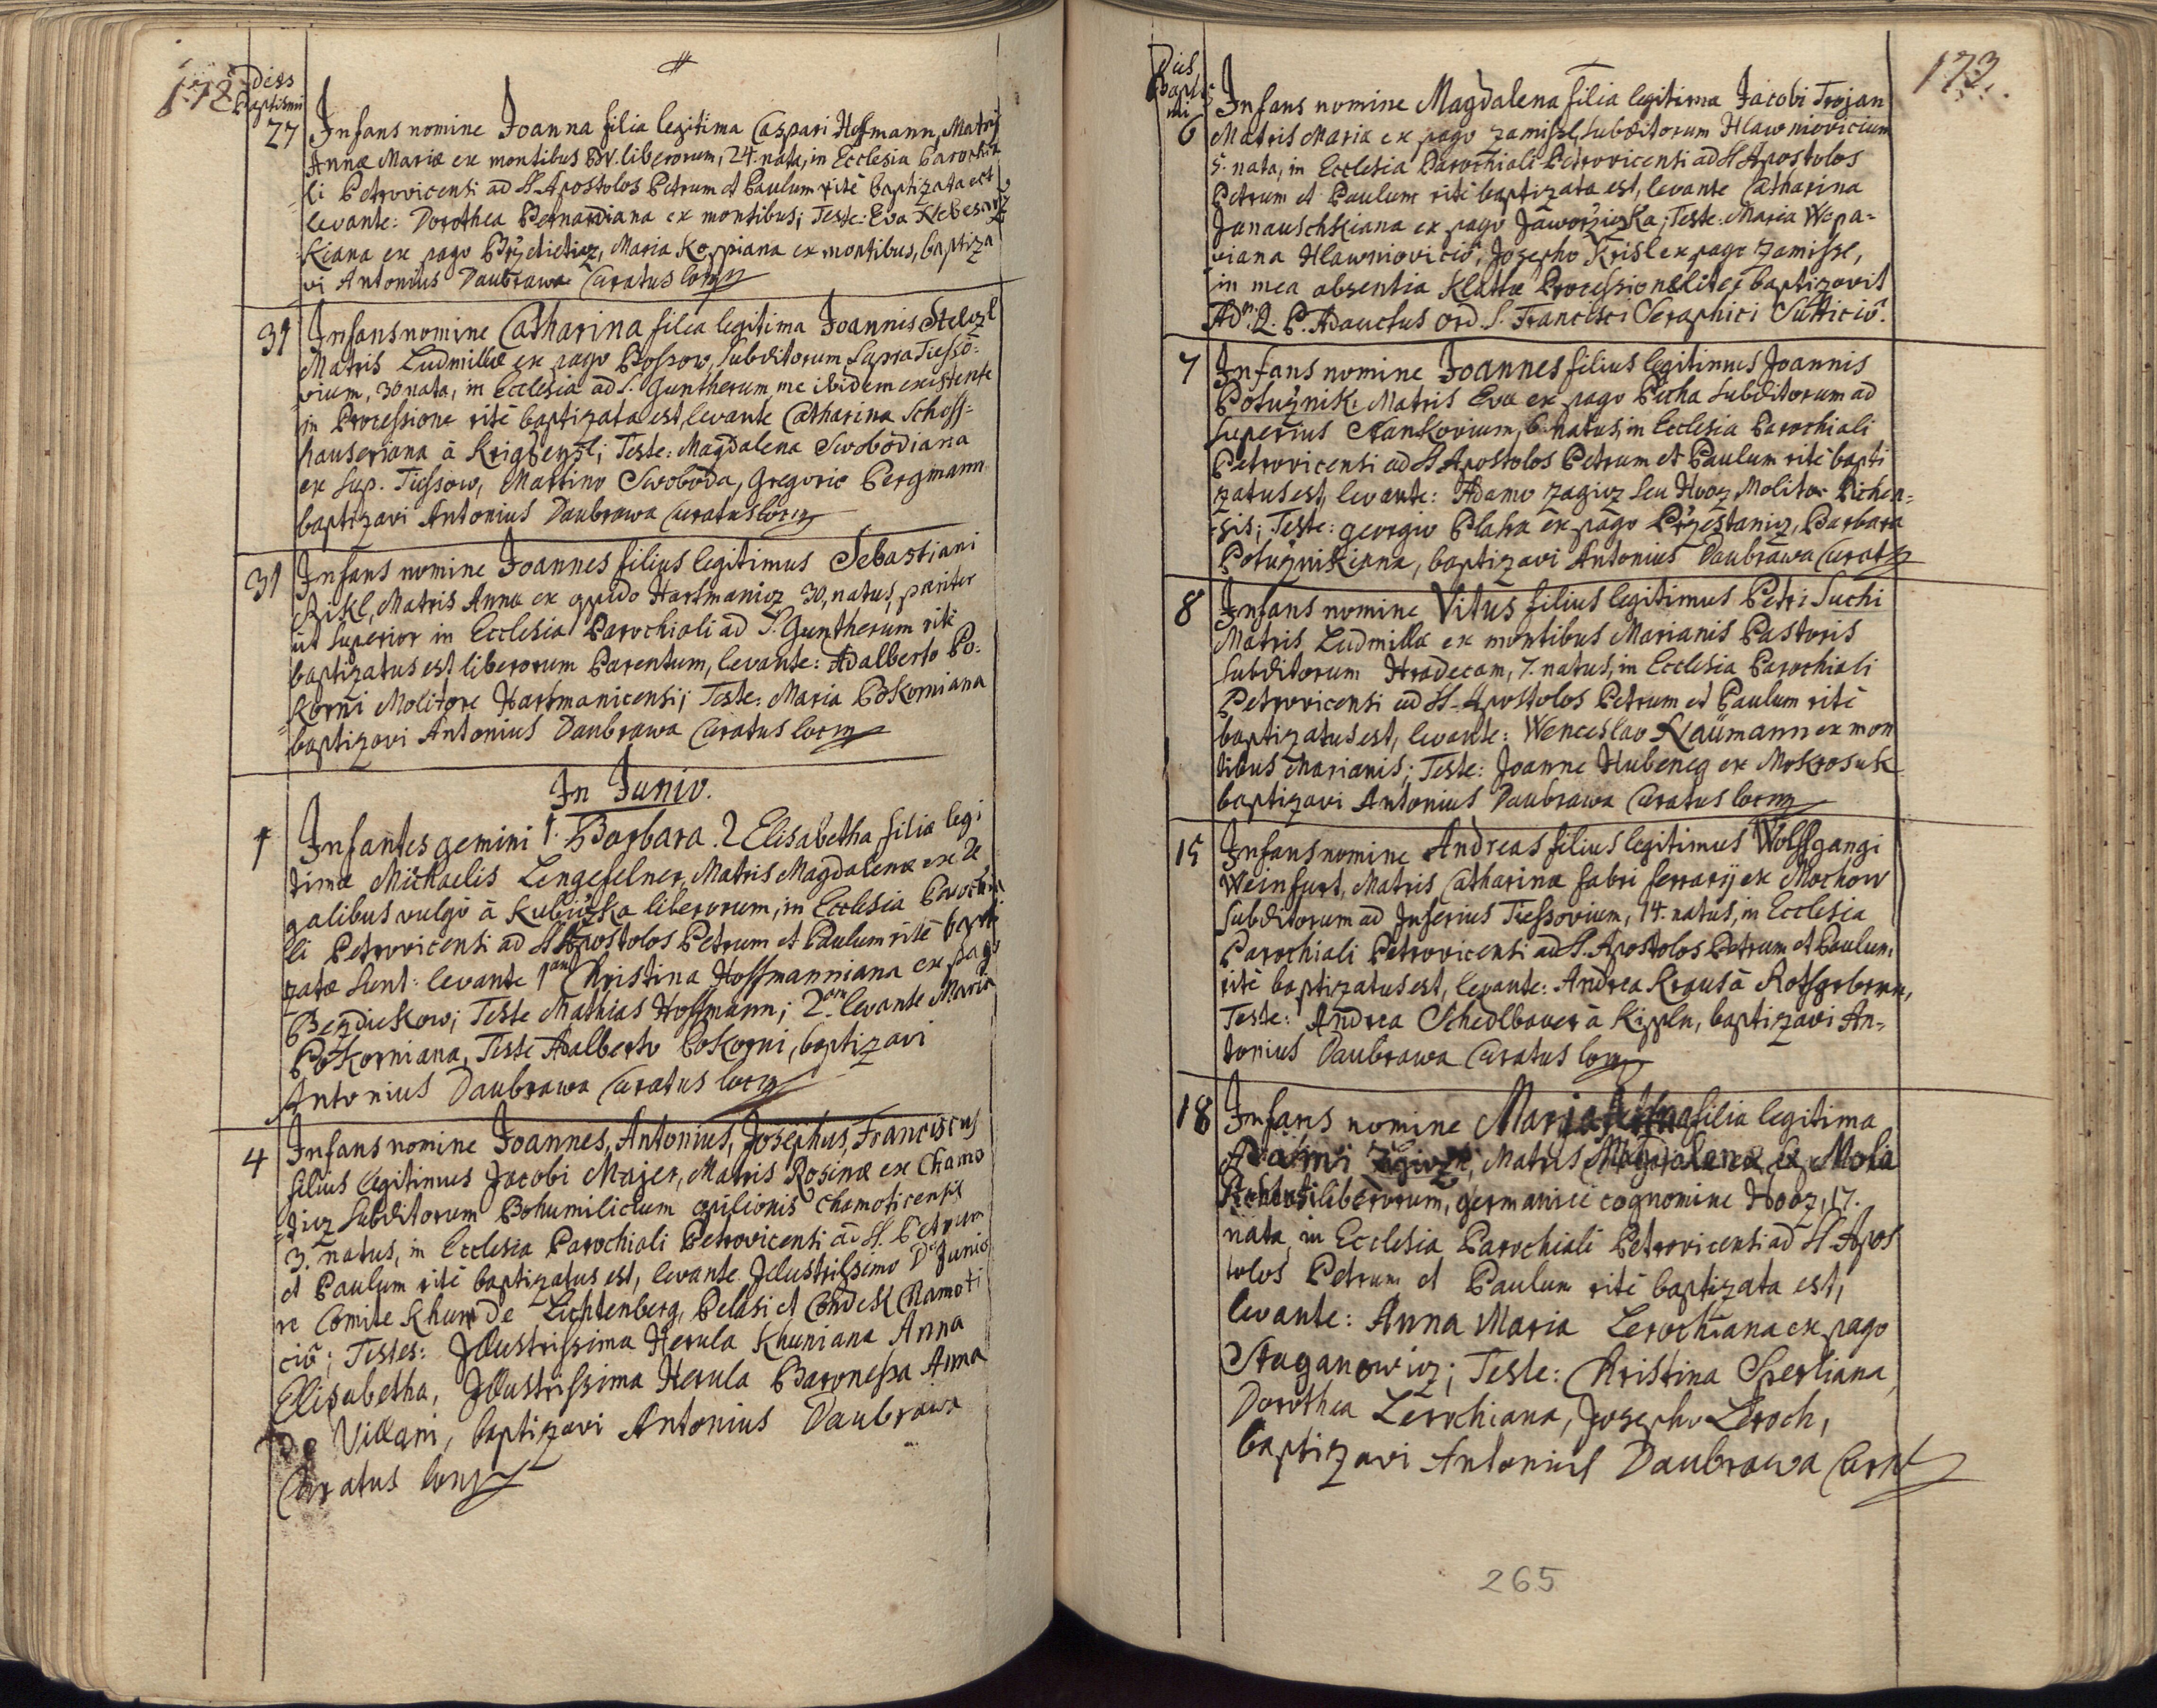 172
Dies
Baptismi
27 Infans nomine Joanna filia legitima Caspari Hoffmann, Matris
Annæ Mariæ ex montibus BW. liberorum, 24. nata, in Ecclesia Parochia
li Petrovicensi ad SS Apostolos Petrum et Paulum ritè baptizata est
levante: Dorothea Bernardiana ex montibus; Teste: Eva
Kiana ex pago Maria Koppiana ex montibus, baptiza
vi Antonius Daubrawa Curatus loci
31 Infans nomine Catharina filia legitima Joannis Stelzl
Matris Ludmillæ ex pago Subditorum Supra Tiesso=
vium, 30 nata, in Ecclesia ad S. Guntherum, me ibidem existente
in Processione ritè baptizata est, levante Catharina Schoss=
hauseriana à Teste: Magdalena Swobodiana
ex Sup. Tiessow, Martino Swoboda, Gregorio Bergmann
baptizavi Antonius Daubrawa Curatus loci
31 Infans nomine Joannes filius legitimus Sebastiani
Rikl, Matris Annæ ex opido Hartmanicz 30, natus, pariter
ut superior in Ecclesia Parochiali ad S. Guntherum ritè
baptizatus est liberorum Parentum, levante: Adalberto Po=
korni Molitore Hartmanicensi; Teste: Maria Pokorniana
baptizavi Antonius Daubrawa Curatus loci
In Junio.
1 Infantes gemini 1. Barbara. 2 Elisabetha filiæ legi
timæ Michaelis Lengefelner, Matris Magdalenæ ex Re
galibus vulgò à liberorum, in Ecclesia Parochia
li Petrovicensi ad SS Apostolos Petrum et Paulum ritè bapti
zatæ sunt: levante 1am Christina Hoffmanniana ex pago
Bezdiekow; Teste Mathias Hoffmann; 2am levante Maria
Pokorniana, Teste Adalberto Pokorni, baptizavi
Antonius Daubrawa Curatus loci
4 Infans nomine Joannes, Antonius, Josephus, Franciscus
filius legitimus Jacobi Majer, Matris Rosinæ ex Chamo
ticz Subditorum Bohumilicium opilionis Chamoticensis
3. natus, in Ecclesia Parochiali Petrovicensi ad SS. Petrum
et Paulum ritè baptizatus est, levante Jllustrissimo D Junio
re Comite Khun De Lichtenberg, Belasi et Chamoti
ciō; Testes: Jllustrissima Herula Khuniana Anna
Elisabetha, Jllustrissima Herula Baronessa Anna
De Villani, baptizavi Antonius Daubrawa
Curatus loci
173.
Dies
Baptis
mi
6 Infans nomine Magdalena filia legitima Jacobi Trojan
Matris Mariæ ex pago Zamissl, Subditorum Hlawniovicium
5. nata, in Ecclesia Parochiali Petrovicensi ad SS Apostolos
Petrum et Paulum ritè baptizata est, levante Catharina
Janauschkiana ex pago Teste: Maria Wepa=
viana Hlawnioviciō, Josepho Krisl ex pago Zamissl,
in mea absentia Klattæ Processionaliter baptizavit
Adm. R. P. Adauctus Ord. S. Francisci Seraphici Sutticiō.
7 Infans nomine Joannes filius legitimus Joannis
Potuznik, Matris Evæ ex pago Subditorum ad
Superius Stankovium, 6. natus, in Ecclesia Parochiali
Petrovicensi ad SS Apostolos Petrum et Paulum ritè bapti
zatus est, levante: Adamo Zagicz seu Hooz Molitor
sis; Teste: Georgio Blaha ex pago Barbara
Potuznikiana, baptizavi Antonius Daubrawa Curat
8 Infans nomine Vitus filius legitimus Petri Suchi
Matris Ludmillæ ex montibus Marianis Pastoris
Subditorum Hradecam, 7. natus, in Ecclesia Parochiali
Petrovicensi ad SS Apostolos Petrum et Paulum ritè
baptizatus est, levante: Wenceslao Naümann ex mon
tibus Marianis; Teste: Joanne Hubeneg ex Mokrosuk
baptizavi Antonius Daubrawa Curatus loci
15 Infans nomine Andreas filius legitimus Wolffgangi
Weinfurt, Matris Catharinæ fabri ferrarij ex Mochow
Subditorum ad Inferius Tiessovium, 14. natus, in Ecclesia
Parochiali Petrovicensi ad SS. Apostolos Petrum et Paulum
ritè baptizatus est, levante: Andrea Kraus à
Teste: Andrea Schedlbauer à baptizavi An=
tonius Daubrawa Curatus loci
18 Infans nomine Maria filia legitima
Adami Matris Magdalenæ ex Mola
liberorum, germanicè cognomine Hooz, 17.
nata, in Ecclesia Parochiali Petrovicensi ad SS Apos
tolos Petrum et Paulum ritè baptizata est,
levante: Anna Maria Lerochiana ex pago
Staganowicz; Teste: Christina Sperliana,
Dorothea Lerochiana, Josepho Leroch,
baptizavi Antonius Daubrawa Curat
265